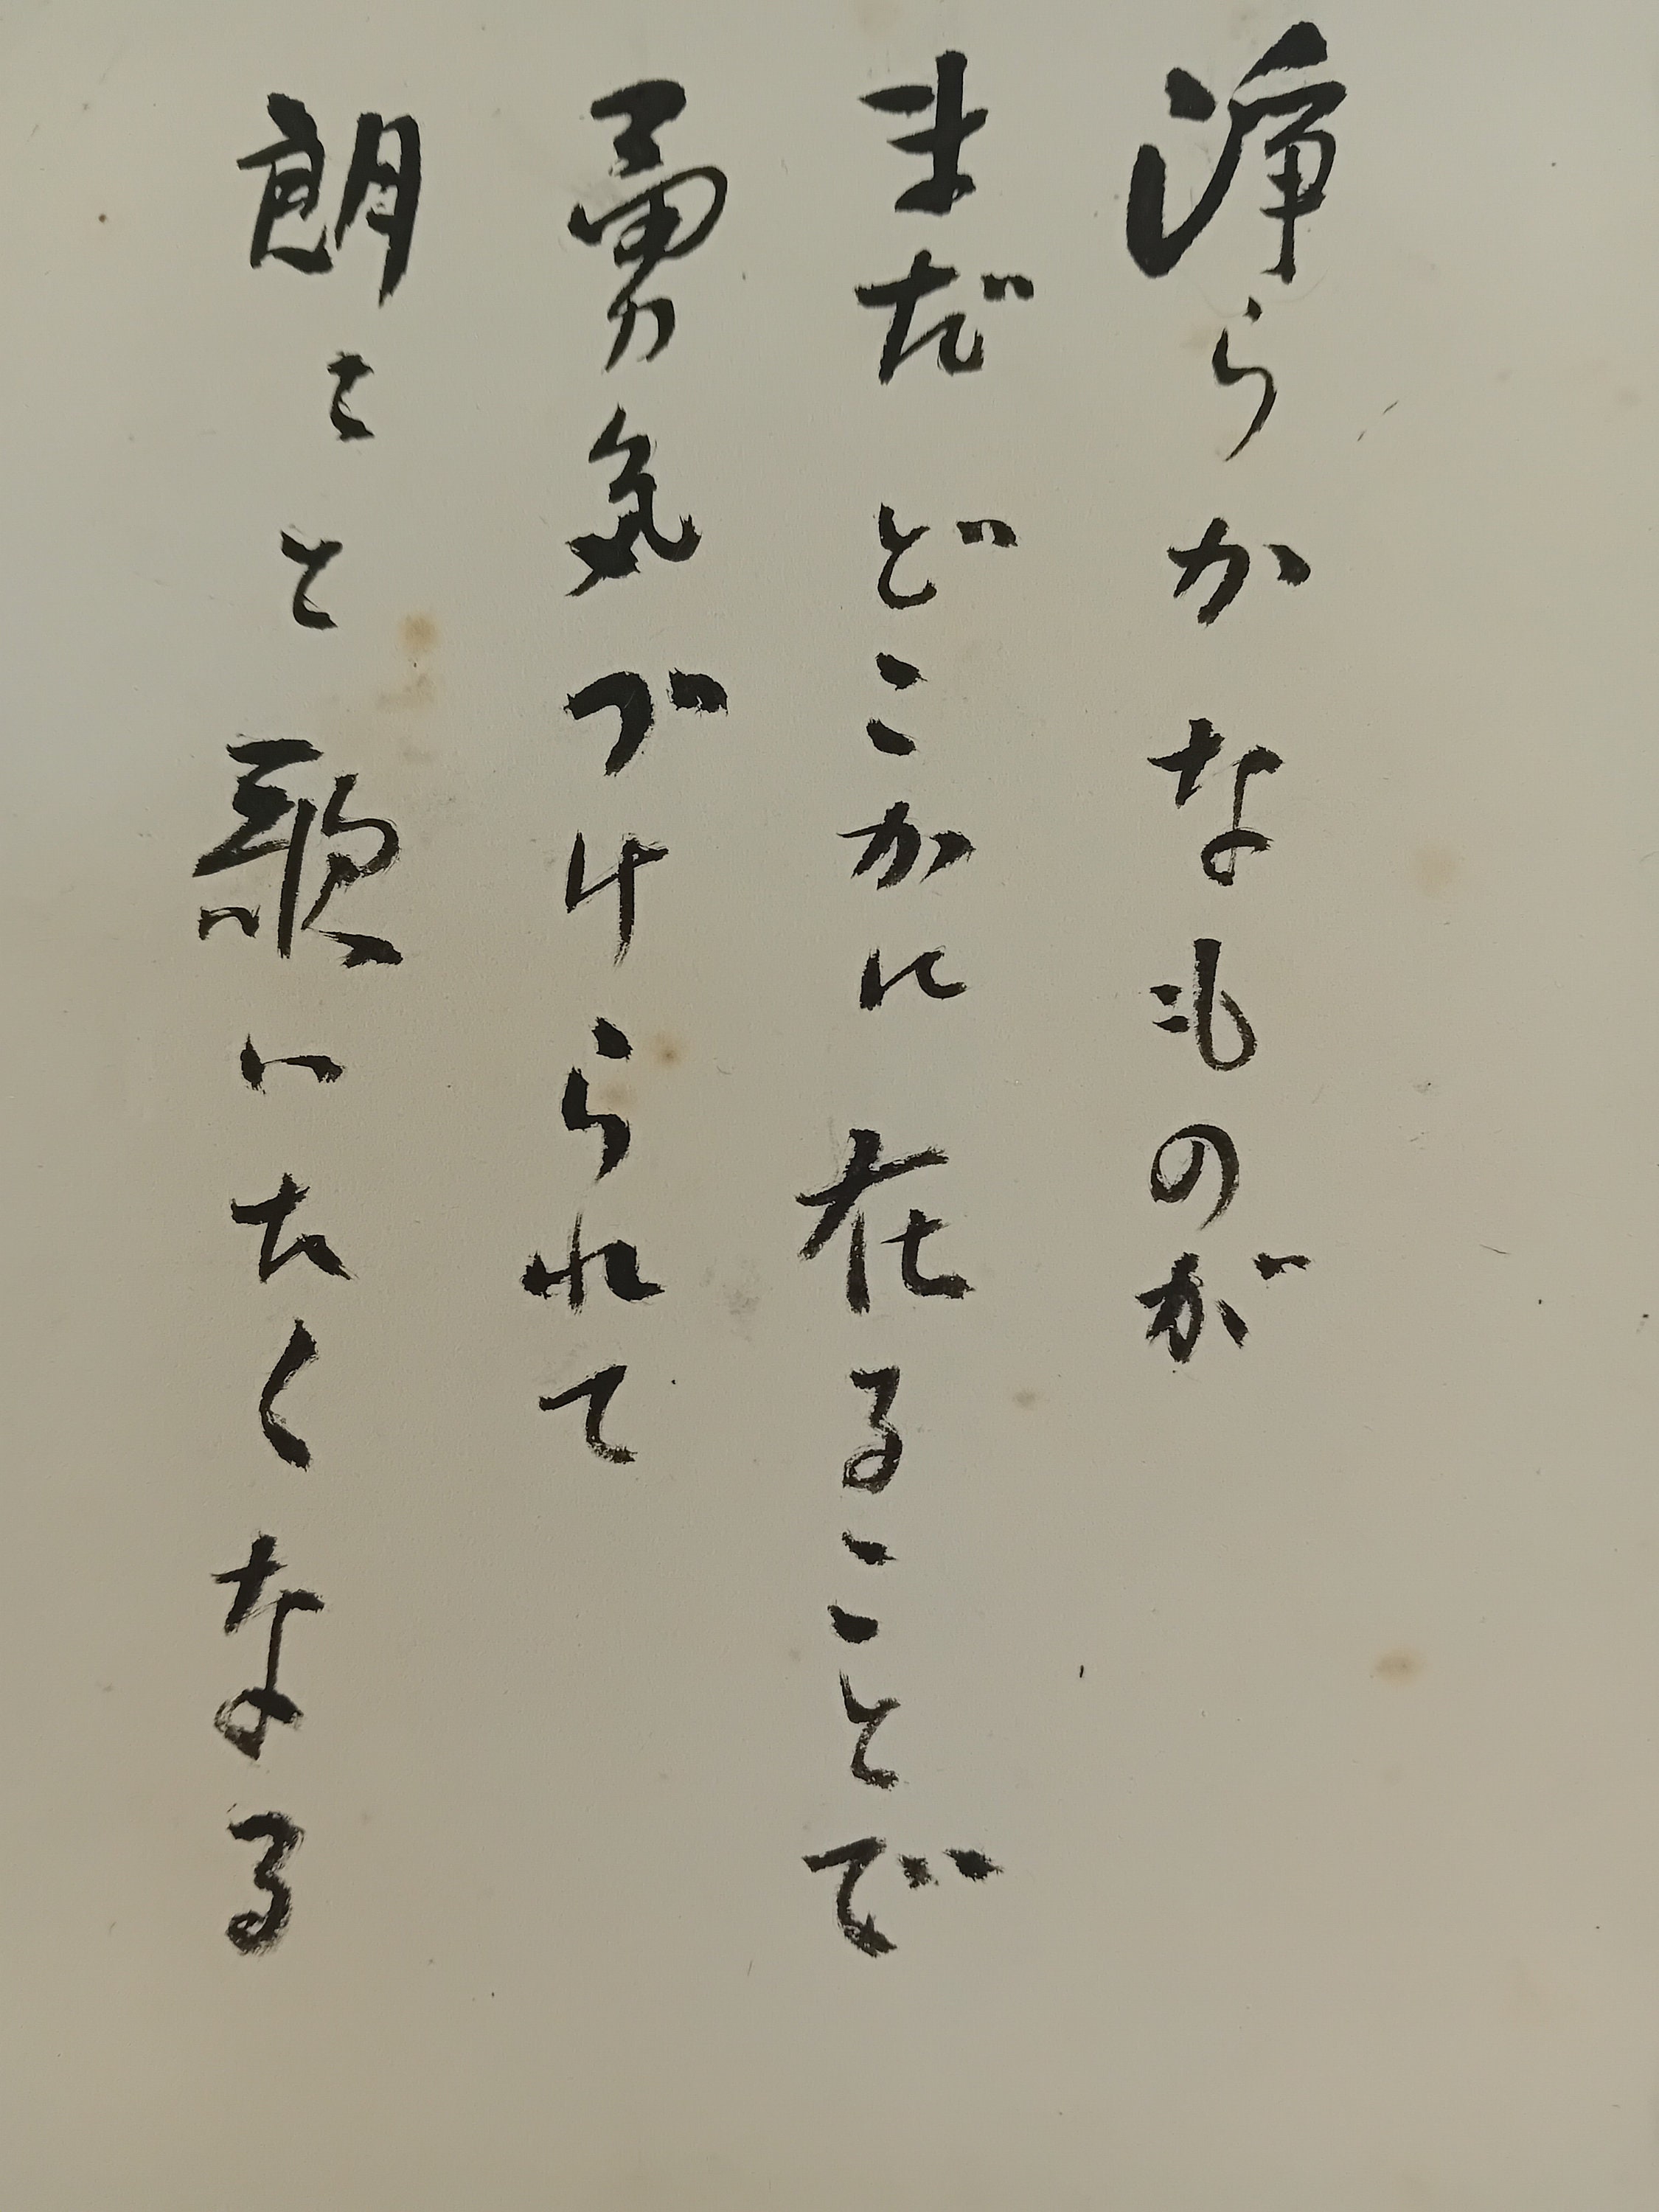 浄らかなものが
まだどこかに在ることで
勇気づけられて
朗々と歌いたくなる